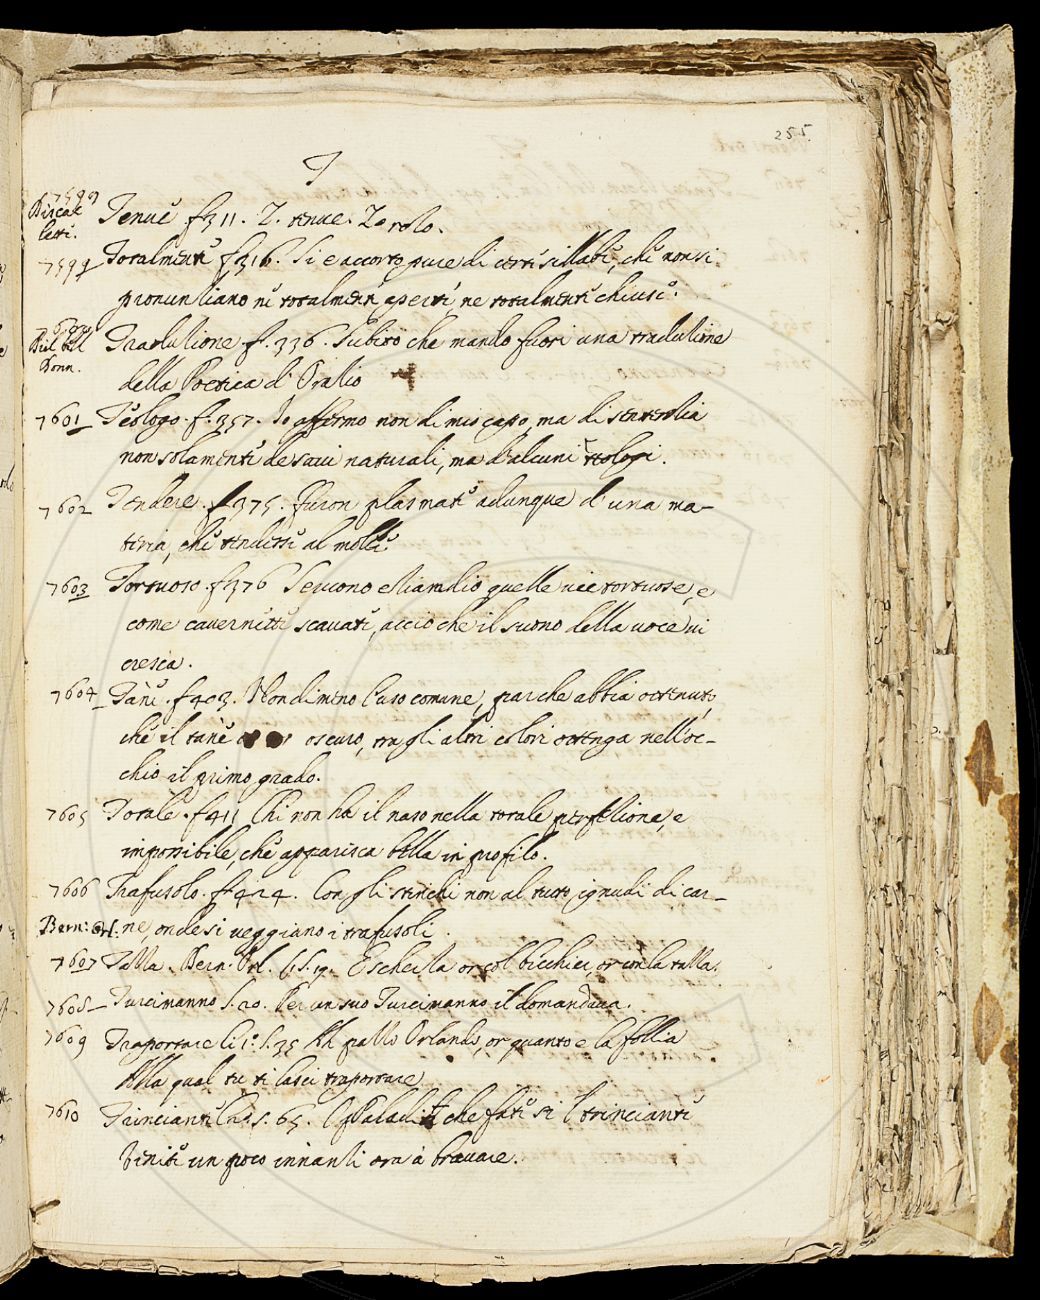 255
T
7598 Tenue f. 311. T. tenue. To rolo.
7599 Totalmente f. 316. Si è accorto pure di certe sillabe, che non si
pronuntiano ne totalmente aperte, ne totalmente chiuse.
7600 Bel. Dell. Donn. Tradutione f. 336. Subito che mando fuori una tradutione
della Poetica d'Oratio
7601 Teologo f. 357. Io affermo non di mio capo, ma di sentenzia
non solamente de savi naturali, ma d'alcuni teologi.
7602 Tendere. f. 375. furon plasmate adunque d'una ma-
teria, che tendesse al molle
7603 Tortuoso. f. 376 Servono etiamdio quelle vie tortuose, e
come cavernette scavate, acciò che il suono della voce vi
cresca.
7604 Tanè. f. 403. Nondimeno l'uso comune, par che abbia ottenuto,
che il tanè oscuro, tra gli altri colori ottenga nell'oc-
chio il primo grado.
7605 Totale. f. 411 Chi non ha il naso nella totale perfetione, è
impossibile, che apparisca bella in profilo.
7606 Trafusolo. f. 424. Con gli stinchi non al tutto ignudi di car-
Bern: Orl. ne, onde si veggiano i trafusoli.
7607 Talla. Bern. Orl. E scherza or col bicchier, or con la talla.
7608 Turcimanno s. 20. Per un suo Turcimanno il domandava.
7609 Traportare li 1°. s. 35 Ah pazzo Orlando, or quanto è la follia
Alla qual tu ti lasci traportare
7610 Trincianti s. 65. che fate si trincianti
Venite un poco innanzi ora à bravare.